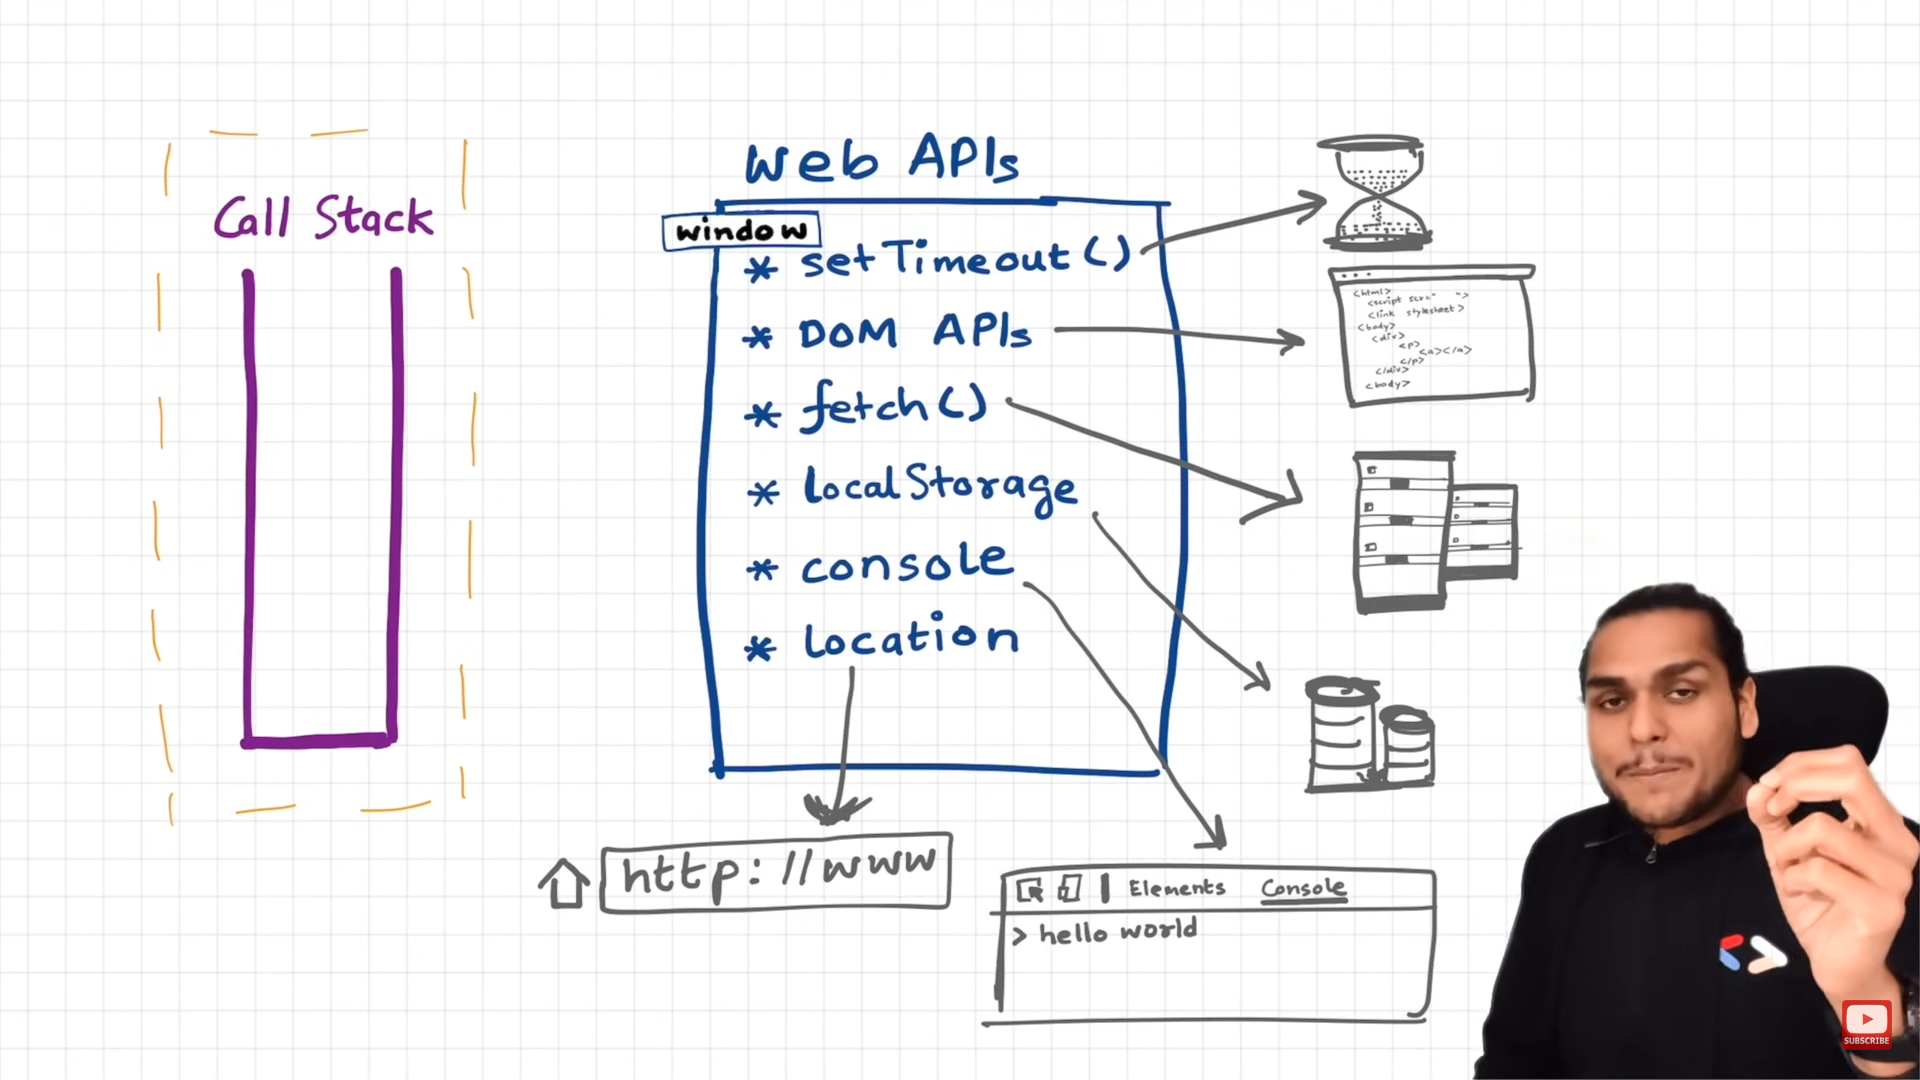 Call Stack
Web APIs
window
* setTimeout()
* DOM APIs
* fetch()
* localStorage
* console
* location
<html>
<script scr=" ">
<link stylesheet>
<body>
<div>
<p>
<a></a>
</p>
</div>
<body>
http://www
Elements Console
> hello world
SUBSCRIBE